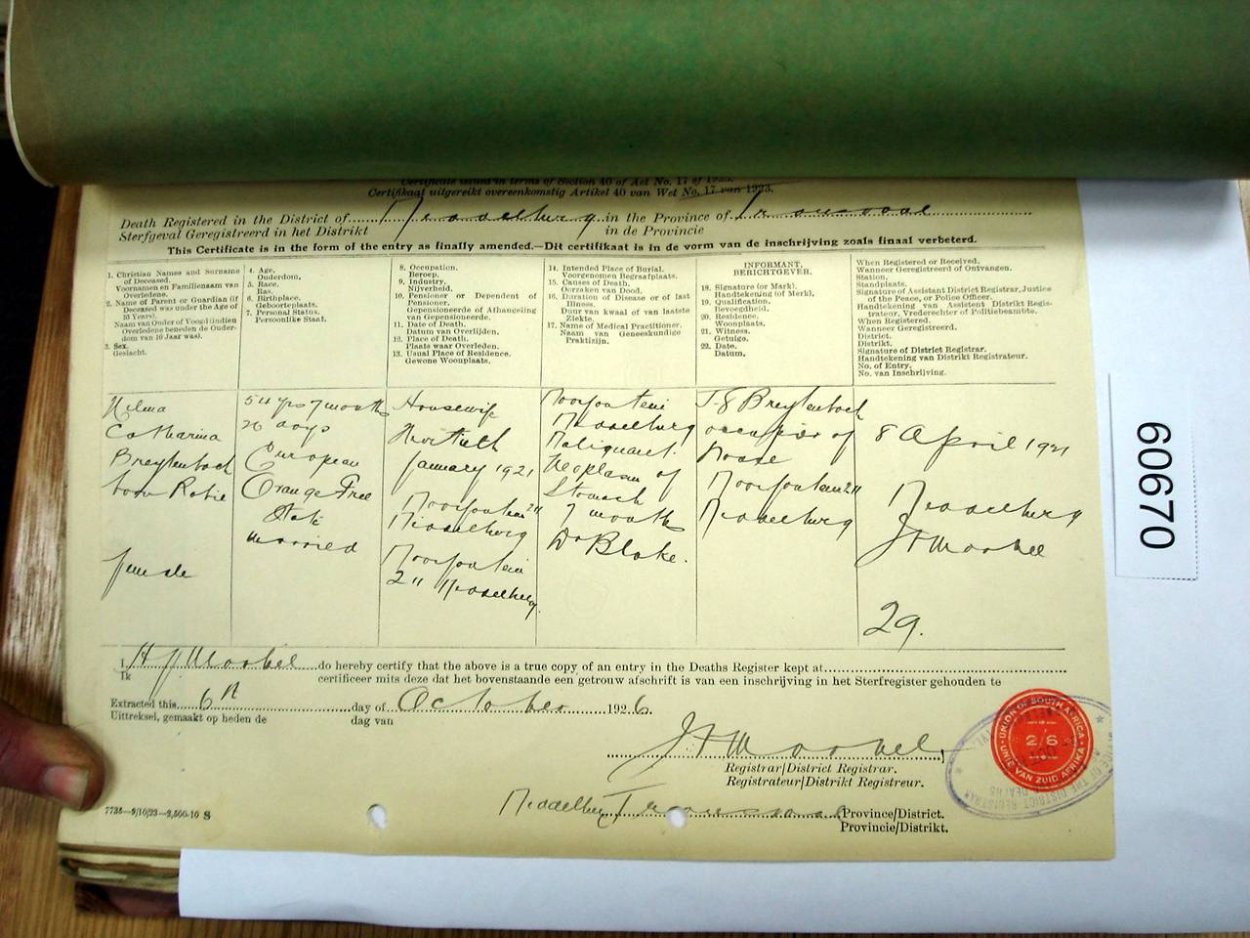 Certificate issued in terms of Section 40 of Act No. 17 of 1923.
Certifikaat uitgereikt overeenkomstig Artikel 40 van Wet No. 17 van 1923.
Death Registered in the District of Middelburg in the Province of Transvaal
Sterfgeval Geregistreerd in het Distrikt in de Provincie
This Certificate is in the form of the entry as finally amended.—Dit certifikaat is in de vorm van de inschrijving zoals finaal verbeterd.
1. Christian Names and Surname
of Deceased.
Voornamen en Familienaam van
Overledene.
2. Name of Parent or Guardian (if
Deceased was under the Age of
10 Years).
Naam van Ouder of Voogd (indien
Overledene beneden de Ouder-
dom van 10 Jaar was).
3. Sex.
Geslacht.
4. Age.
Ouderdom.
5. Race.
Ras.
6. Birthplace.
Geboorteplaats.
7. Personal Status.
Persoonlike Staat.
8. Occupation.
Beroep.
9. Industry.
Nijverheid.
10. Pensioner or Dependent of
Pensioner.
Gepensioneerde of Afhanceling
van Gepensioneerde.
11. Date of Death.
Datum van Overlijden.
12. Place of Death.
Plaats waar Overleden.
13. Usual Place of Residence.
Gewone Woonplaats.
14. Intended Place of Burial.
Voorgenomen Begraafplaats.
15. Causes of Death.
Oorzaken van Dood.
16. Duration of Disease or of last
Illness.
Duur van kwaal of van laatste
Ziekte.
17. Name of Medical Practitioner.
Naam van Geneeskundige
Praktizijn.
INFORMANT.
BERICHTGEVER.
18. Signature (or Mark).
Handtekening (of Merk).
19. Qualification.
Bevoegdheid.
20. Residence.
Woonplaats.
21. Witness.
Getuige.
22. Date.
Datum.
When Registered or Received.
Wanneer Geregistreerd of Ontvangen.
Station.
Standplaats.
Signature of Assistant District Registrar, Justice
of the Peace, or Police Officer.
Handtekening van Assistent Distrikt Regis-
trateur, Vrederechter of Politiebeambte.
When Registered.
Wanneer Geregistreerd.
District.
Distrikt.
Signature of District Registrar.
Handtekening van Distrikt Registrateur.
No. of Entry.
No. van Inschrijving.
Catharina
Breytenbach
born
female
7 months
20 days
European
Orange Free
State
married
Housewife
January 1921
Middelburg
2" Middelburg
Middelburg
Malignant
Neoplasm of
Stomach
7 months
Dr Blake.
Breytenbach
occupier of
house
Middelburg
8 April 1921
Middelburg
29.
I, do hereby certify that the above is a true copy of an entry in the Deaths Register kept at
Ik certificeer mits deze dat het bovenstaande een getrouw afschrift is van een inschrijving in het Sterfregister gehouden te
Extracted this 6th day of October 1926.
Uittreksel, gemaakt op heden de dag van
Registrar/District Registrar.
Registrateur/Distrikt Registreur.
Middelburg Transvaal Province/District.
Provincie/Distrikt.
7735—9/10/23—2,500-10 S
UNION OF SOUTH AFRICA
2/6
UNIE VAN ZUID AFRIKA
60970